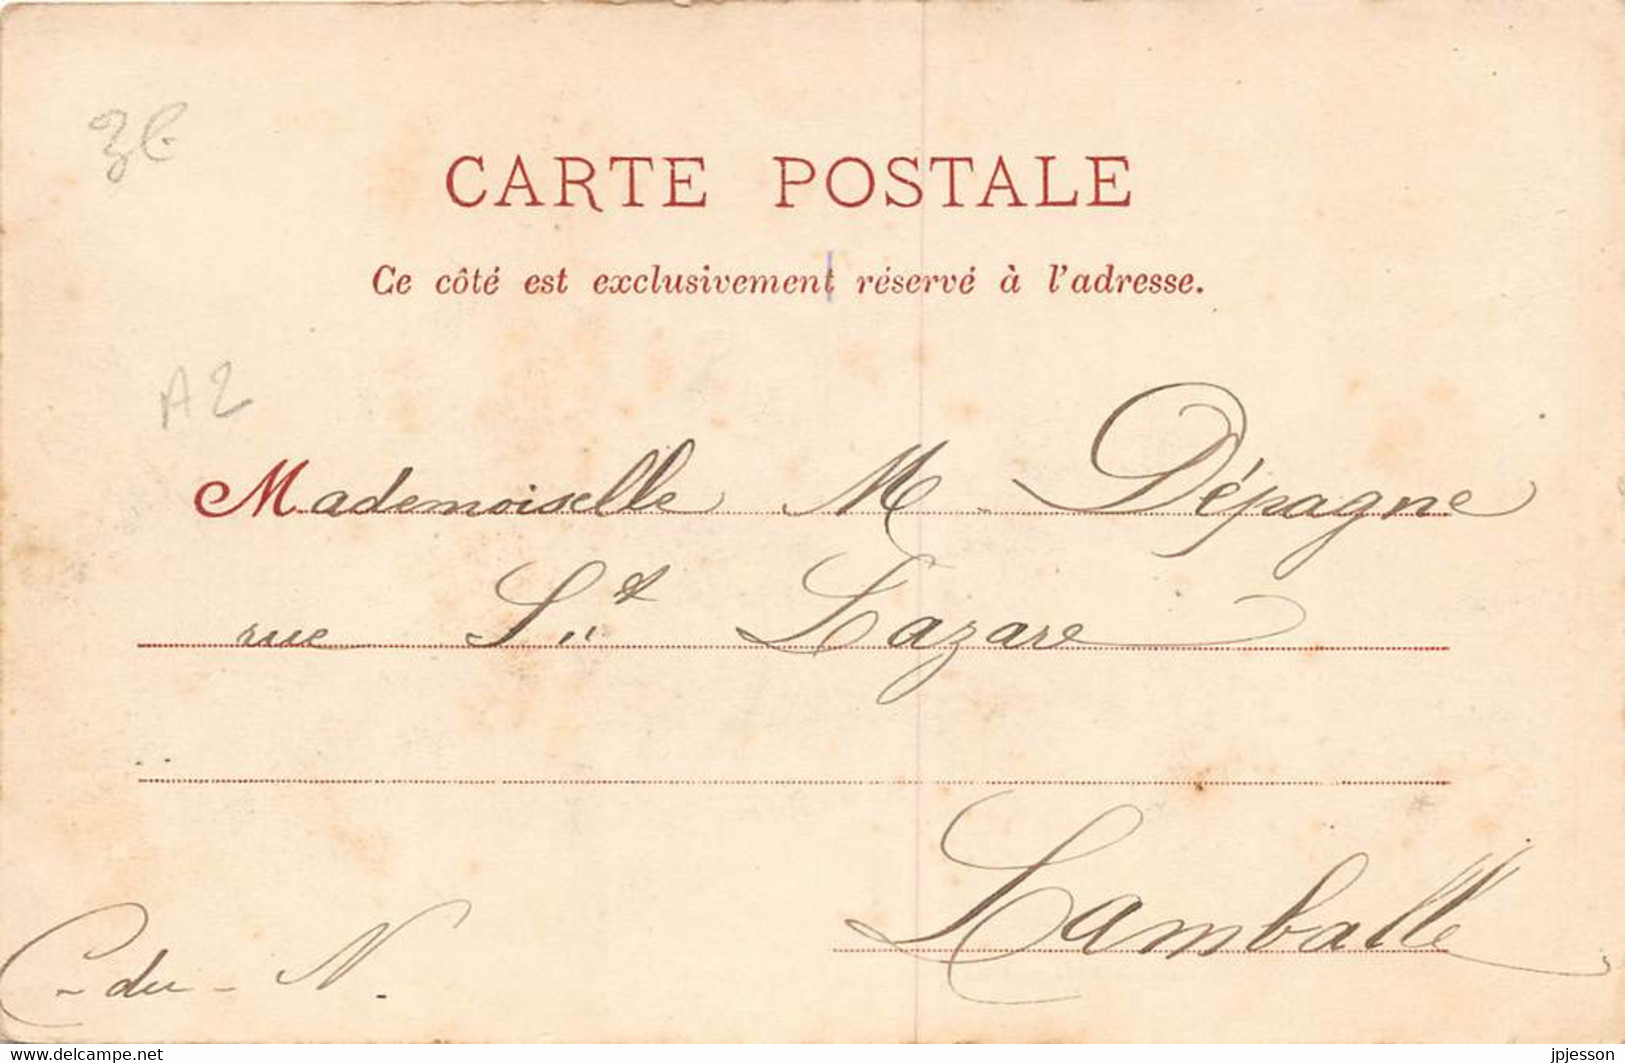 3€
CARTE POSTALE
Ce côté est exclusivement réservé à l'adresse.
A2
Mademoiselle M. Dépagne
rue St Lazare
Lamballe
C-du-N.
www.delcampe.net
jpjesson